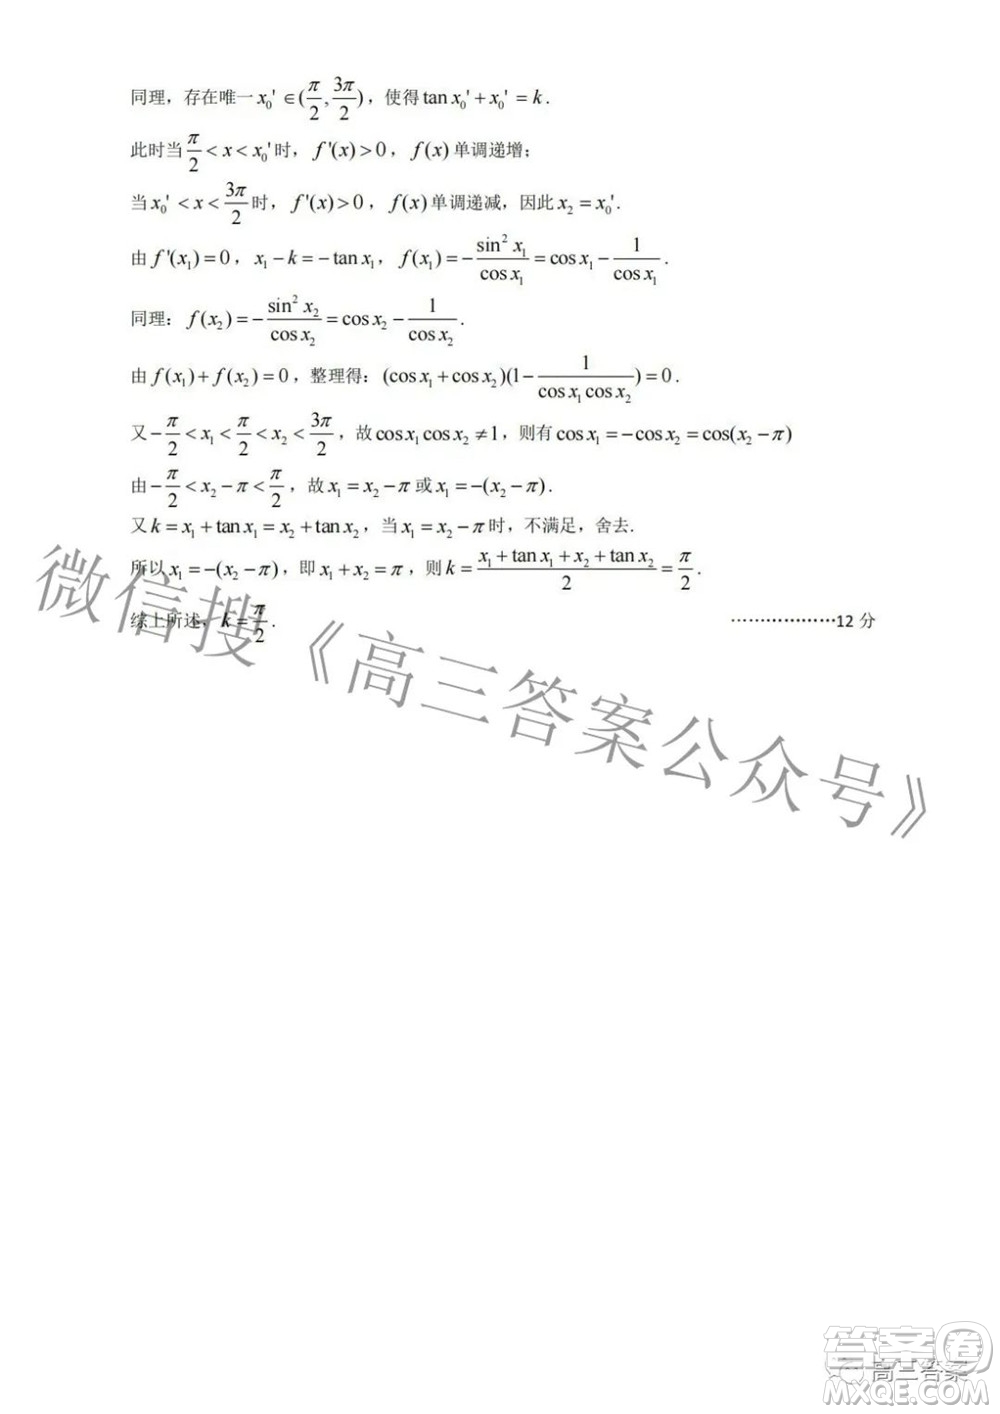 同理，存在唯一 x₀' ∈ (π/2, 3π/2)，使得 tan x₀' + x₀' = k .
此时当 π/2 < x < x₀' 时，f'(x) > 0，f(x) 单调递增；
当 x₀' < x < 3π/2 时，f'(x) > 0，f(x) 单调递减，因此 x₂ = x₀'.
由 f'(x₁) = 0，x₁ − k = −tan x₁，f(x₁) = −sin² x₁/cos x₁ = cos x₁ − 1/cos x₁ .
同理：f(x₂) = −sin² x₂/cos x₂ = cos x₂ − 1/cos x₂ .
由 f(x₁) + f(x₂) = 0，整理得：(cos x₁ + cos x₂)(1 − 1/(cos x₁ cos x₂)) = 0 .
又 −π/2 < x₁ < π/2 < x₂ < 3π/2，故 cos x₁ cos x₂ ≠ 1，则有 cos x₁ = −cos x₂ = cos(x₂ − π)
由 −π/2 < x₂ − π < π/2，故 x₁ = x₂ − π 或 x₁ = −(x₂ − π) .
又 k = x₁ + tan x₁ = x₂ + tan x₂，当 x₁ = x₂ − π 时，不满足，舍去.
所以 x₁ = −(x₂ − π)，即 x₁ + x₂ = π，则 k = (x₁ + tan x₁ + x₂ + tan x₂)/2 = π/2 .
综上所述，k = π/2 . ………………12 分
微信搜《高三答案公众号》
答案卷
高三答案
MXQE.COM